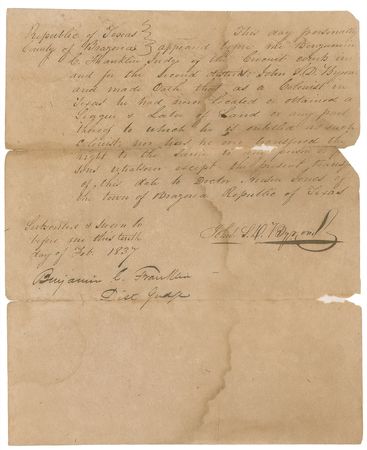 Republic of Texas } This day personally
County of Brazoria } appeared before me Benjamin
C. Franklin Judge of the Circuit court in
and for the Second district John S.D. Byrom
and made Oath that, as a Colonist in
Texas he had never located or obtained a
League & Labor of Land or any part
thereof to which he is entitled as such
Colonist, nor has he transferred the
right to the same to any person or per
sons whatsoever except the present transfer
of this date to Doctor Anson Jones of
the town of Brazoria Republic of Texas
Subscribed & Sworn to
before me this tenth
day of Feb. 1837
John S.D. Byrom
Benjamin C. Franklin
Dist Judge